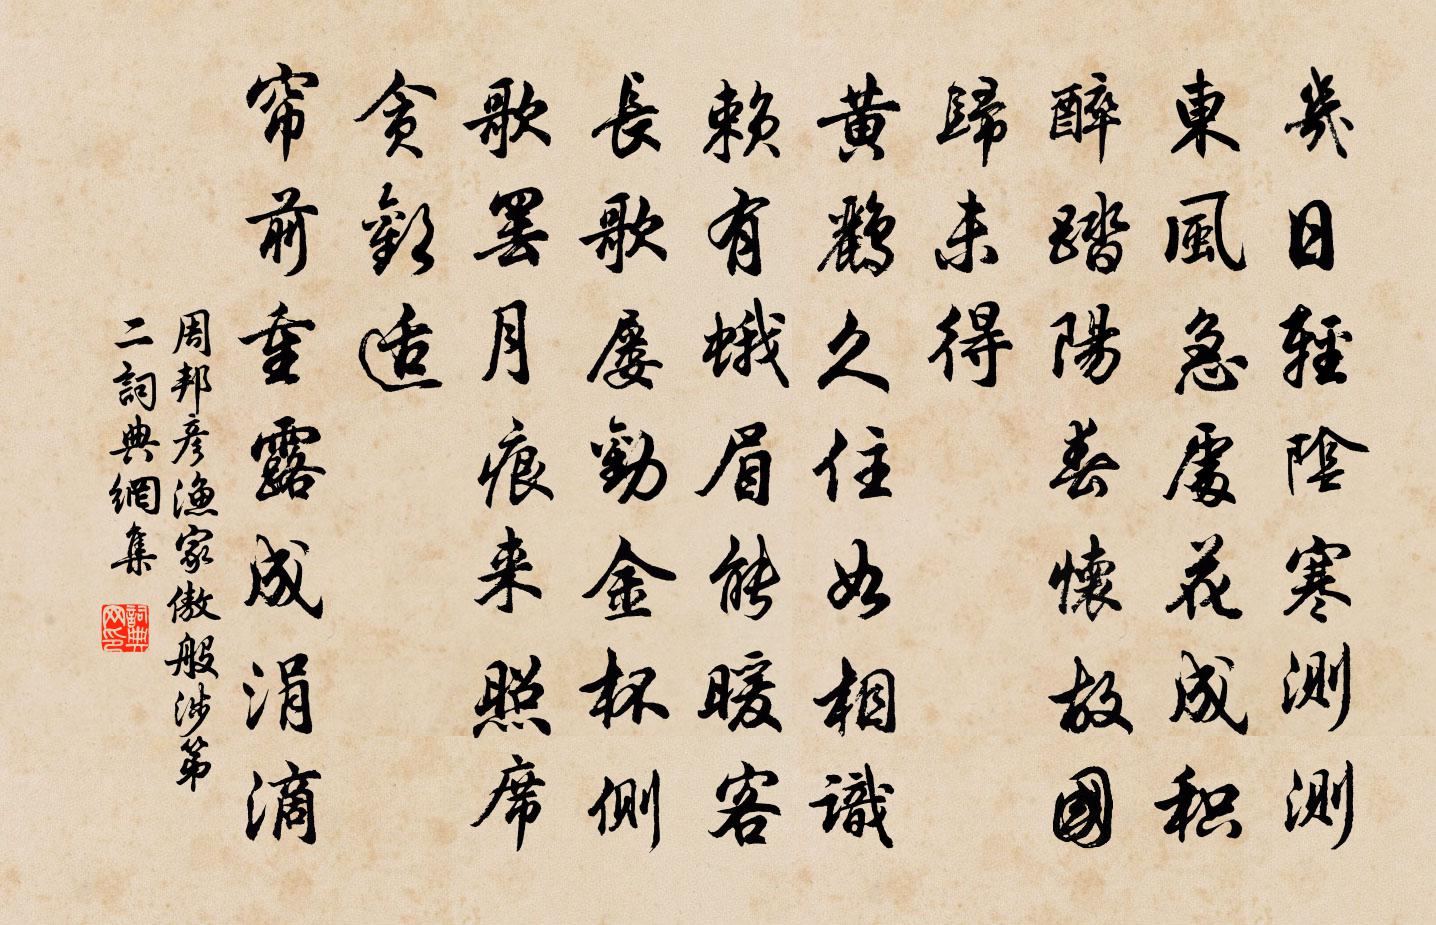 幾日輕陰寒測測
東風急處花成积
醉踏陽春懷故國
歸未得
黄鸝久住如相識
賴有蛾眉能暖客
長歌屡勸金杯側
歌罢月痕来照席
贪歡适
帘前重露成涓滴
周邦彦渔家傲般涉第
二詞典網集
詞典网印